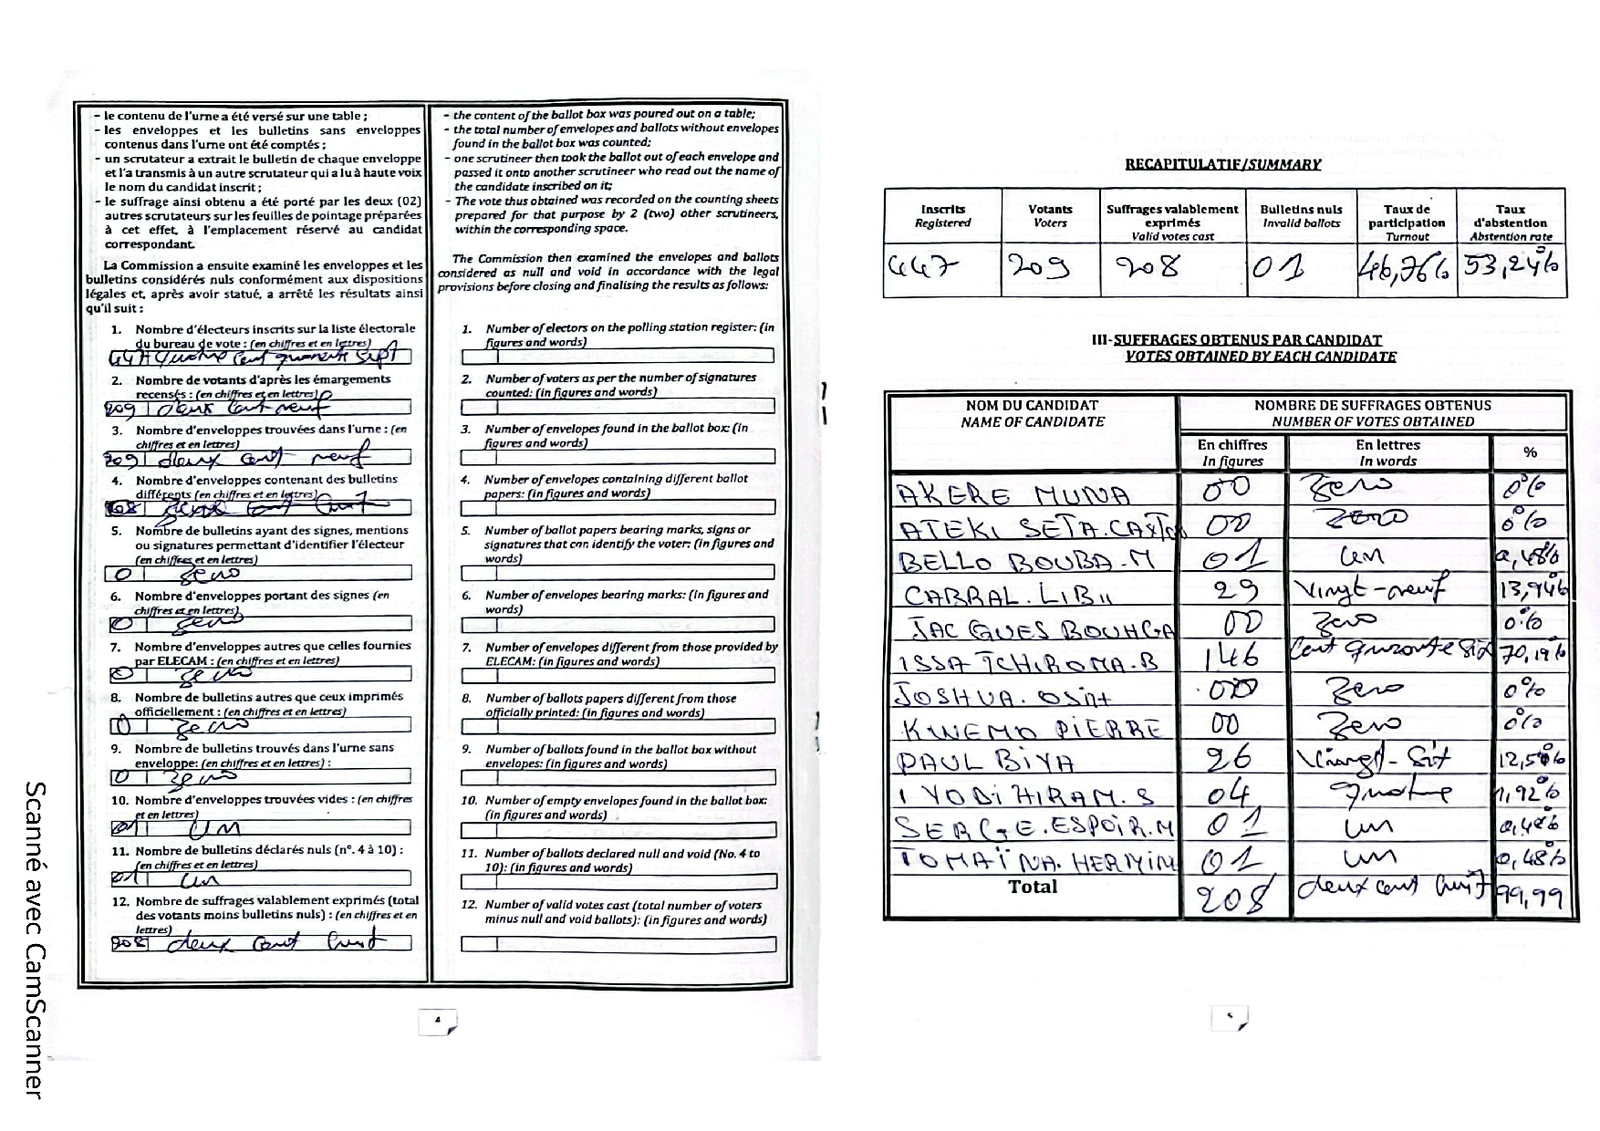 - le contenu de l'urne a été versé sur une table ;
- les enveloppes et les bulletins sans enveloppes
contenus dans l'urne ont été comptés ;
- un scrutateur a extrait le bulletin de chaque enveloppe
et l'a transmis à un autre scrutateur qui a lu à haute voix
le nom du candidat inscrit ;
- le suffrage ainsi obtenu a été porté par les deux (02)
autres scrutateurs sur les feuilles de pointage préparées
à cet effet, à l'emplacement réservé au candidat
correspondant.
La Commission a ensuite examiné les enveloppes et les
bulletins considérés nuls conformément aux dispositions
légales et, après avoir statué, a arrêté les résultats ainsi
qu'il suit :
1. Nombre d'électeurs inscrits sur la liste électorale
du bureau de vote : (en chiffres et en lettres)
447 quatre cent quarante sept
2. Nombre de votants d'après les émargements
recensés : (en chiffres et en lettres)
209 deux cent neuf
3. Nombre d'enveloppes trouvées dans l'urne : (en
chiffres et en lettres)
209 deux cent neuf
4. Nombre d'enveloppes contenant des bulletins
différents (en chiffres et en lettres)
5. Nombre de bulletins ayant des signes, mentions
ou signatures permettant d'identifier l'électeur
(en chiffres et en lettres)
0 zero
6. Nombre d'enveloppes portant des signes (en
chiffres et en lettres)
0 zero
7. Nombre d'enveloppes autres que celles fournies
par ELECAM : (en chiffres et en lettres)
0 zero
8. Nombre de bulletins autres que ceux imprimés
officiellement : (en chiffres et en lettres)
0 zero
9. Nombre de bulletins trouvés dans l'urne sans
enveloppe: (en chiffres et en lettres) :
0 zero
10. Nombre d'enveloppes trouvées vides : (en chiffres
et en lettres)
01 un
11. Nombre de bulletins déclarés nuls (n°. 4 à 10) :
(en chiffres et en lettres)
01 un
12. Nombre de suffrages valablement exprimés (total
des votants moins bulletins nuls) : (en chiffres et en
lettres)
208 deux cent huit
- the content of the ballot box was poured out on a table;
- the total number of envelopes and ballots without envelopes
found in the ballot box was counted;
- one scrutineer then took the ballot out of each envelope and
passed it onto another scrutineer who read out the name of
the candidate inscribed on it;
- The vote thus obtained was recorded on the counting sheets
prepared for that purpose by 2 (two) other scrutineers,
within the corresponding space.
The Commission then examined the envelopes and ballots
considered as null and void in accordance with the legal
provisions before closing and finalising the results as follows:
1. Number of electors on the polling station register: (in
figures and words)
2. Number of voters as per the number of signatures
counted: (in figures and words)
3. Number of envelopes found in the ballot box: (in
figures and words)
4. Number of envelopes containing different ballot
papers: (in figures and words)
5. Number of ballot papers bearing marks, signs or
signatures that can identify the voter: (in figures and
words)
6. Number of envelopes bearing marks: (in figures and
words)
7. Number of envelopes different from those provided by
ELECAM: (in figures and words)
8. Number of ballots papers different from those
officially printed: (in figures and words)
9. Number of ballots found in the ballot box without
envelopes: (in figures and words)
10. Number of empty envelopes found in the ballot box:
(in figures and words)
11. Number of ballots declared null and void (No. 4 to
10): (in figures and words)
12. Number of valid votes cast (total number of voters
minus null and void ballots): (in figures and words)
4
Scanné avec CamScanner
RECAPITULATIF/SUMMARY
Inscrits Votants Suffrages valablement exprimés Bulletins nuls Taux de participation Taux d'abstention
Registered Voters Valid votes cast Invalid ballots Turnout Abstention rate
447 209 208 01 46,76% 53,24%
III- SUFFRAGES OBTENUS PAR CANDIDAT
VOTES OBTAINED BY EACH CANDIDATE
NOM DU CANDIDAT NOMBRE DE SUFFRAGES OBTENUS
NAME OF CANDIDATE NUMBER OF VOTES OBTAINED
En chiffres En lettres %
In figures In words
AKERE MUNA 00 zero 0%
ATEKI SETA.CAXTON 00 zero 0%
BELLO BOUBA.M 01 un 0,48%
CABRAL.LIBII 29 vingt-neuf 13,94%
JACQUES BOUHGA 00 zero 0%
ISSA TCHIROMA.B 146 cent quarante six 70,19%
JOSHUA.OSIH 00 zero 0%
KWEMO PIERRE 00 zero 0%
PAUL BIYA 26 vingt-six 12,5%
IYODI HIRAM.S 04 quatre 1,92%
SERGE.ESPOIR.M 01 un 0,48%
TOMAÏNA.HERMIN 01 un 0,48%
Total 208 deux cent huit 99,99